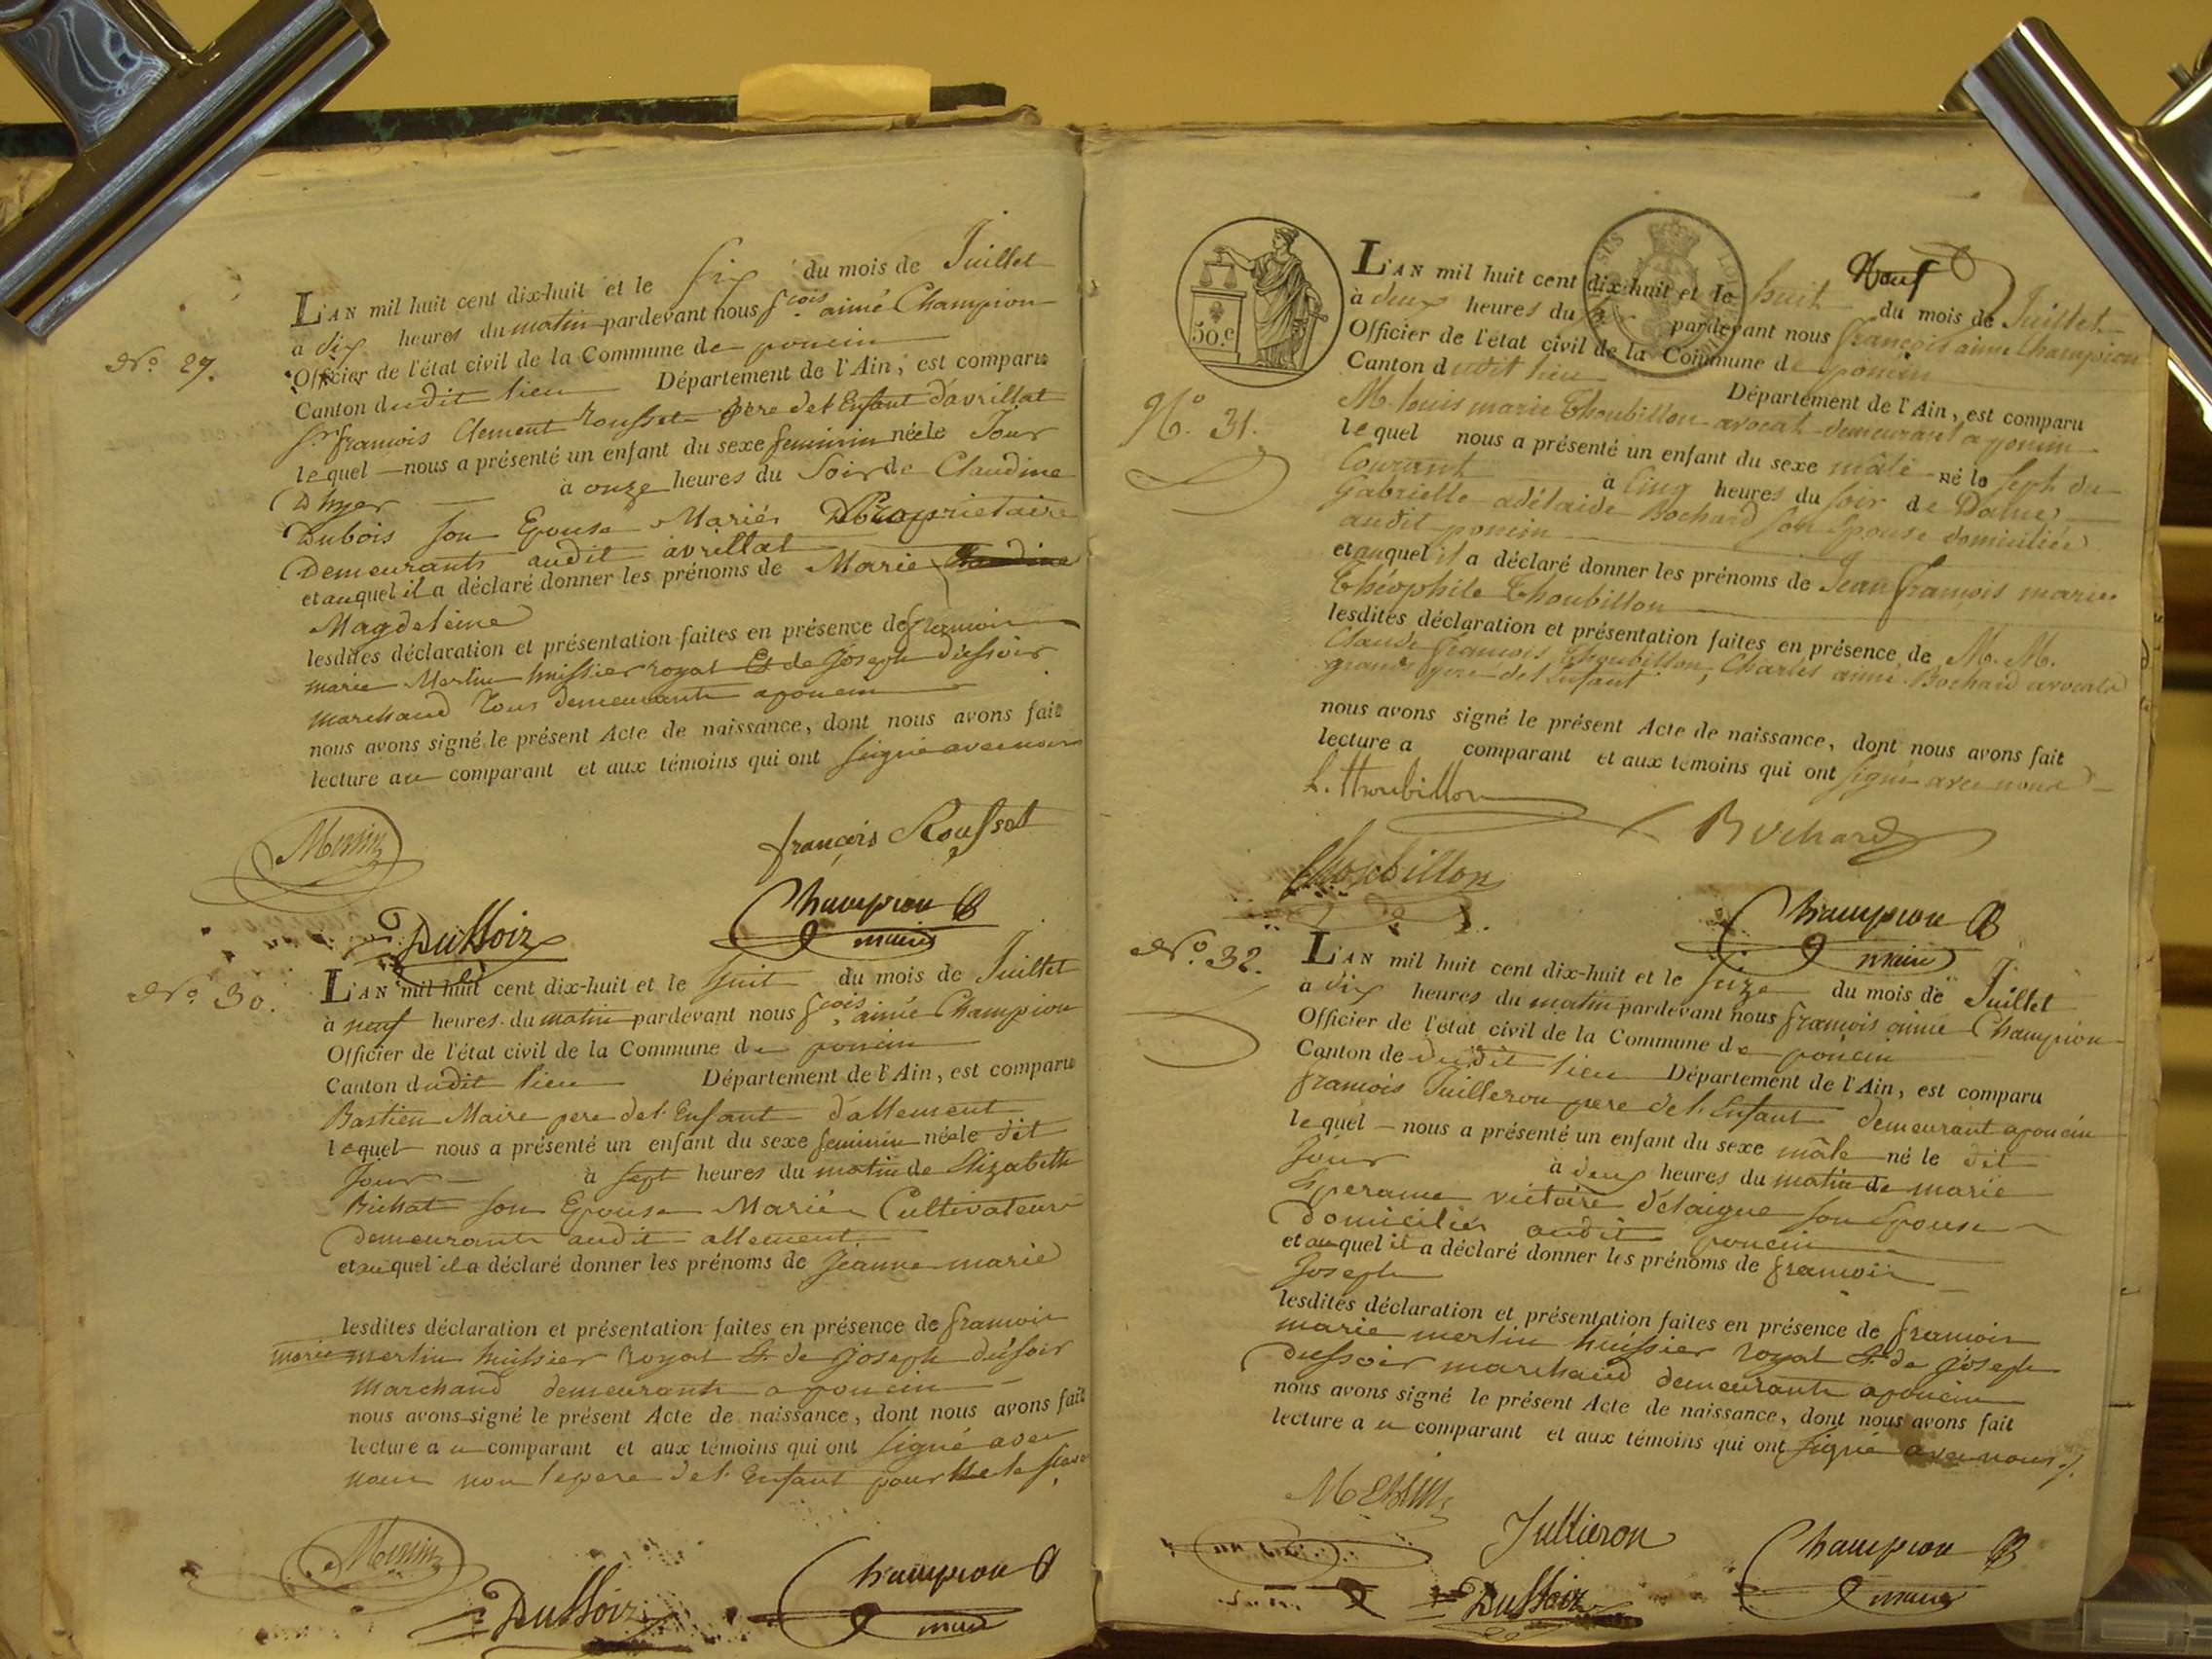 L'AN mil huit cent dix-huit et le six du mois de Juillet
a dix heures du matin pardevant nous fcois aimé Champion
No. 29.
Officier de l'état civil de la Commune de poncin
Canton dudit lieu Département de l'Ain, est comparu
sr. francois Clement rousset père de l'Enfant d'avrillat
lequel nous a présenté un enfant du sexe feminin née le Jour
D'hyer à onze heures du Soir de Claudine
Dubois son Epouse Mariés Proprietaire
Demeurants audit avrillat
et auquel il a déclaré donner les prénoms de Marie Claudine
Magdeleine
lesdites déclaration et présentation faites en présence de francois
marie Merlin huissier royal Et de Joseph dussoir
marchand Tous demeurants a poncin
nous avons signé le présent Acte de naissance, dont nous avons fait
lecture au comparant et aux témoins qui ont signé avec nous
Merlin
françois Rousset
Dussoir
Champion
maire
No. 30.
L'AN mil huit cent dix-huit et le huit du mois de Juillet
à neuf heures du matin pardevant nous fcois aimé Champion
Officier de l'état civil de la Commune de poncin
Canton dudit lieu Département de l'Ain, est comparu
Bastien Maire pere de l'Enfant d'allement
lequel nous a présenté un enfant du sexe feminin née le dit
Jour à sept heures du matin de Elizabeth
Bichat son Epouse Mariés Cultivateurs
demeurants audit allement
et auquel il a déclaré donner les prénoms de Jeanne marie
lesdites déclaration et présentation faites en présence de francois
marie merlin huissier Royal Et de Joseph dussoir
marchand demeurants a poncin
nous avons signé le présent Acte de naissance, dont nous avons fait
lecture au comparant et aux témoins qui ont signé avec
nous non le pere de l'Enfant pour ne le scavoir
Merlin
Dussoir
Champion
maire
50.c
L'AN mil huit cent dix-huit et le huit Neuf du mois de Juillet
à deux heures du soir pardevant nous françois aimé Champion
Officier de l'état civil de la Commune de poncin
Canton dudit lieu Département de l'Ain, est comparu
No. 31.
M. louis marie Thoubillon avocat demeurant a poncin
lequel nous a présenté un enfant du sexe mâle né le sept du
Courant à Cinq heures du soir de Dame
Gabrielle adélaide Bochard son Epouse domiciliée
audit poncin
et auquel il a déclaré donner les prénoms de Jean françois marie
Théophile Thoubillon
lesdites déclaration et présentation faites en présence de M. M.
Claude françois Thoubillon, Charles aimé Bochard avocats
grands pere de l'enfant
nous avons signé le présent Acte de naissance, dont nous avons fait
lecture a comparant et aux témoins qui ont signé avec nous
L. Thoubillon
Bochard
Thoubillon
Champion
maire
No. 32.
L'AN mil huit cent dix-huit et le onze du mois de Juillet
a dix heures du matin pardevant nous francois aimé Champion
Officier de l'état civil de la Commune de poncin
Canton de dudit lieu Département de l'Ain, est comparu
francois Juilleron pere de l'Enfant demeurant a poncin
lequel nous a présenté un enfant du sexe mâle né le dit
Jour à deux heures du matin de marie
Esperance victoire delaigue son Epouse
domiciliés audit poncin
et auquel il a déclaré donner les prénoms de francois
Joseph
lesdites déclaration et présentation faites en présence de francois
marie merlin huissier royal Et de Joseph
dussoir marchand demeurants a poncin
nous avons signé le présent Acte de naissance, dont nous avons fait
lecture au comparant et aux témoins qui ont signé avec nous
Merlin
Jullieron
Dussoir
Champion
maire